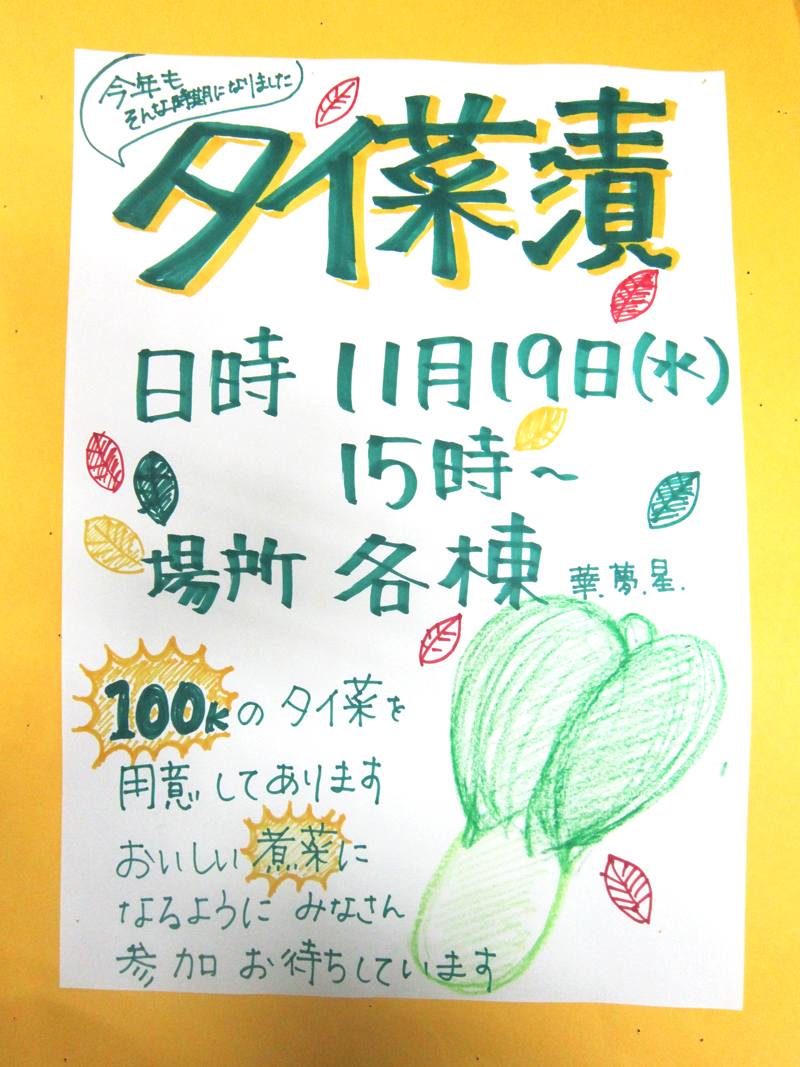 今年も
そんな時期になりました
タイ菜漬
日時 11月19日(水)
15時～
場所 各棟 華.夢.星.
100kの タイ菜を
用意してあります
おいしい煮菜に
なるように みなさん
参加お待ちしています